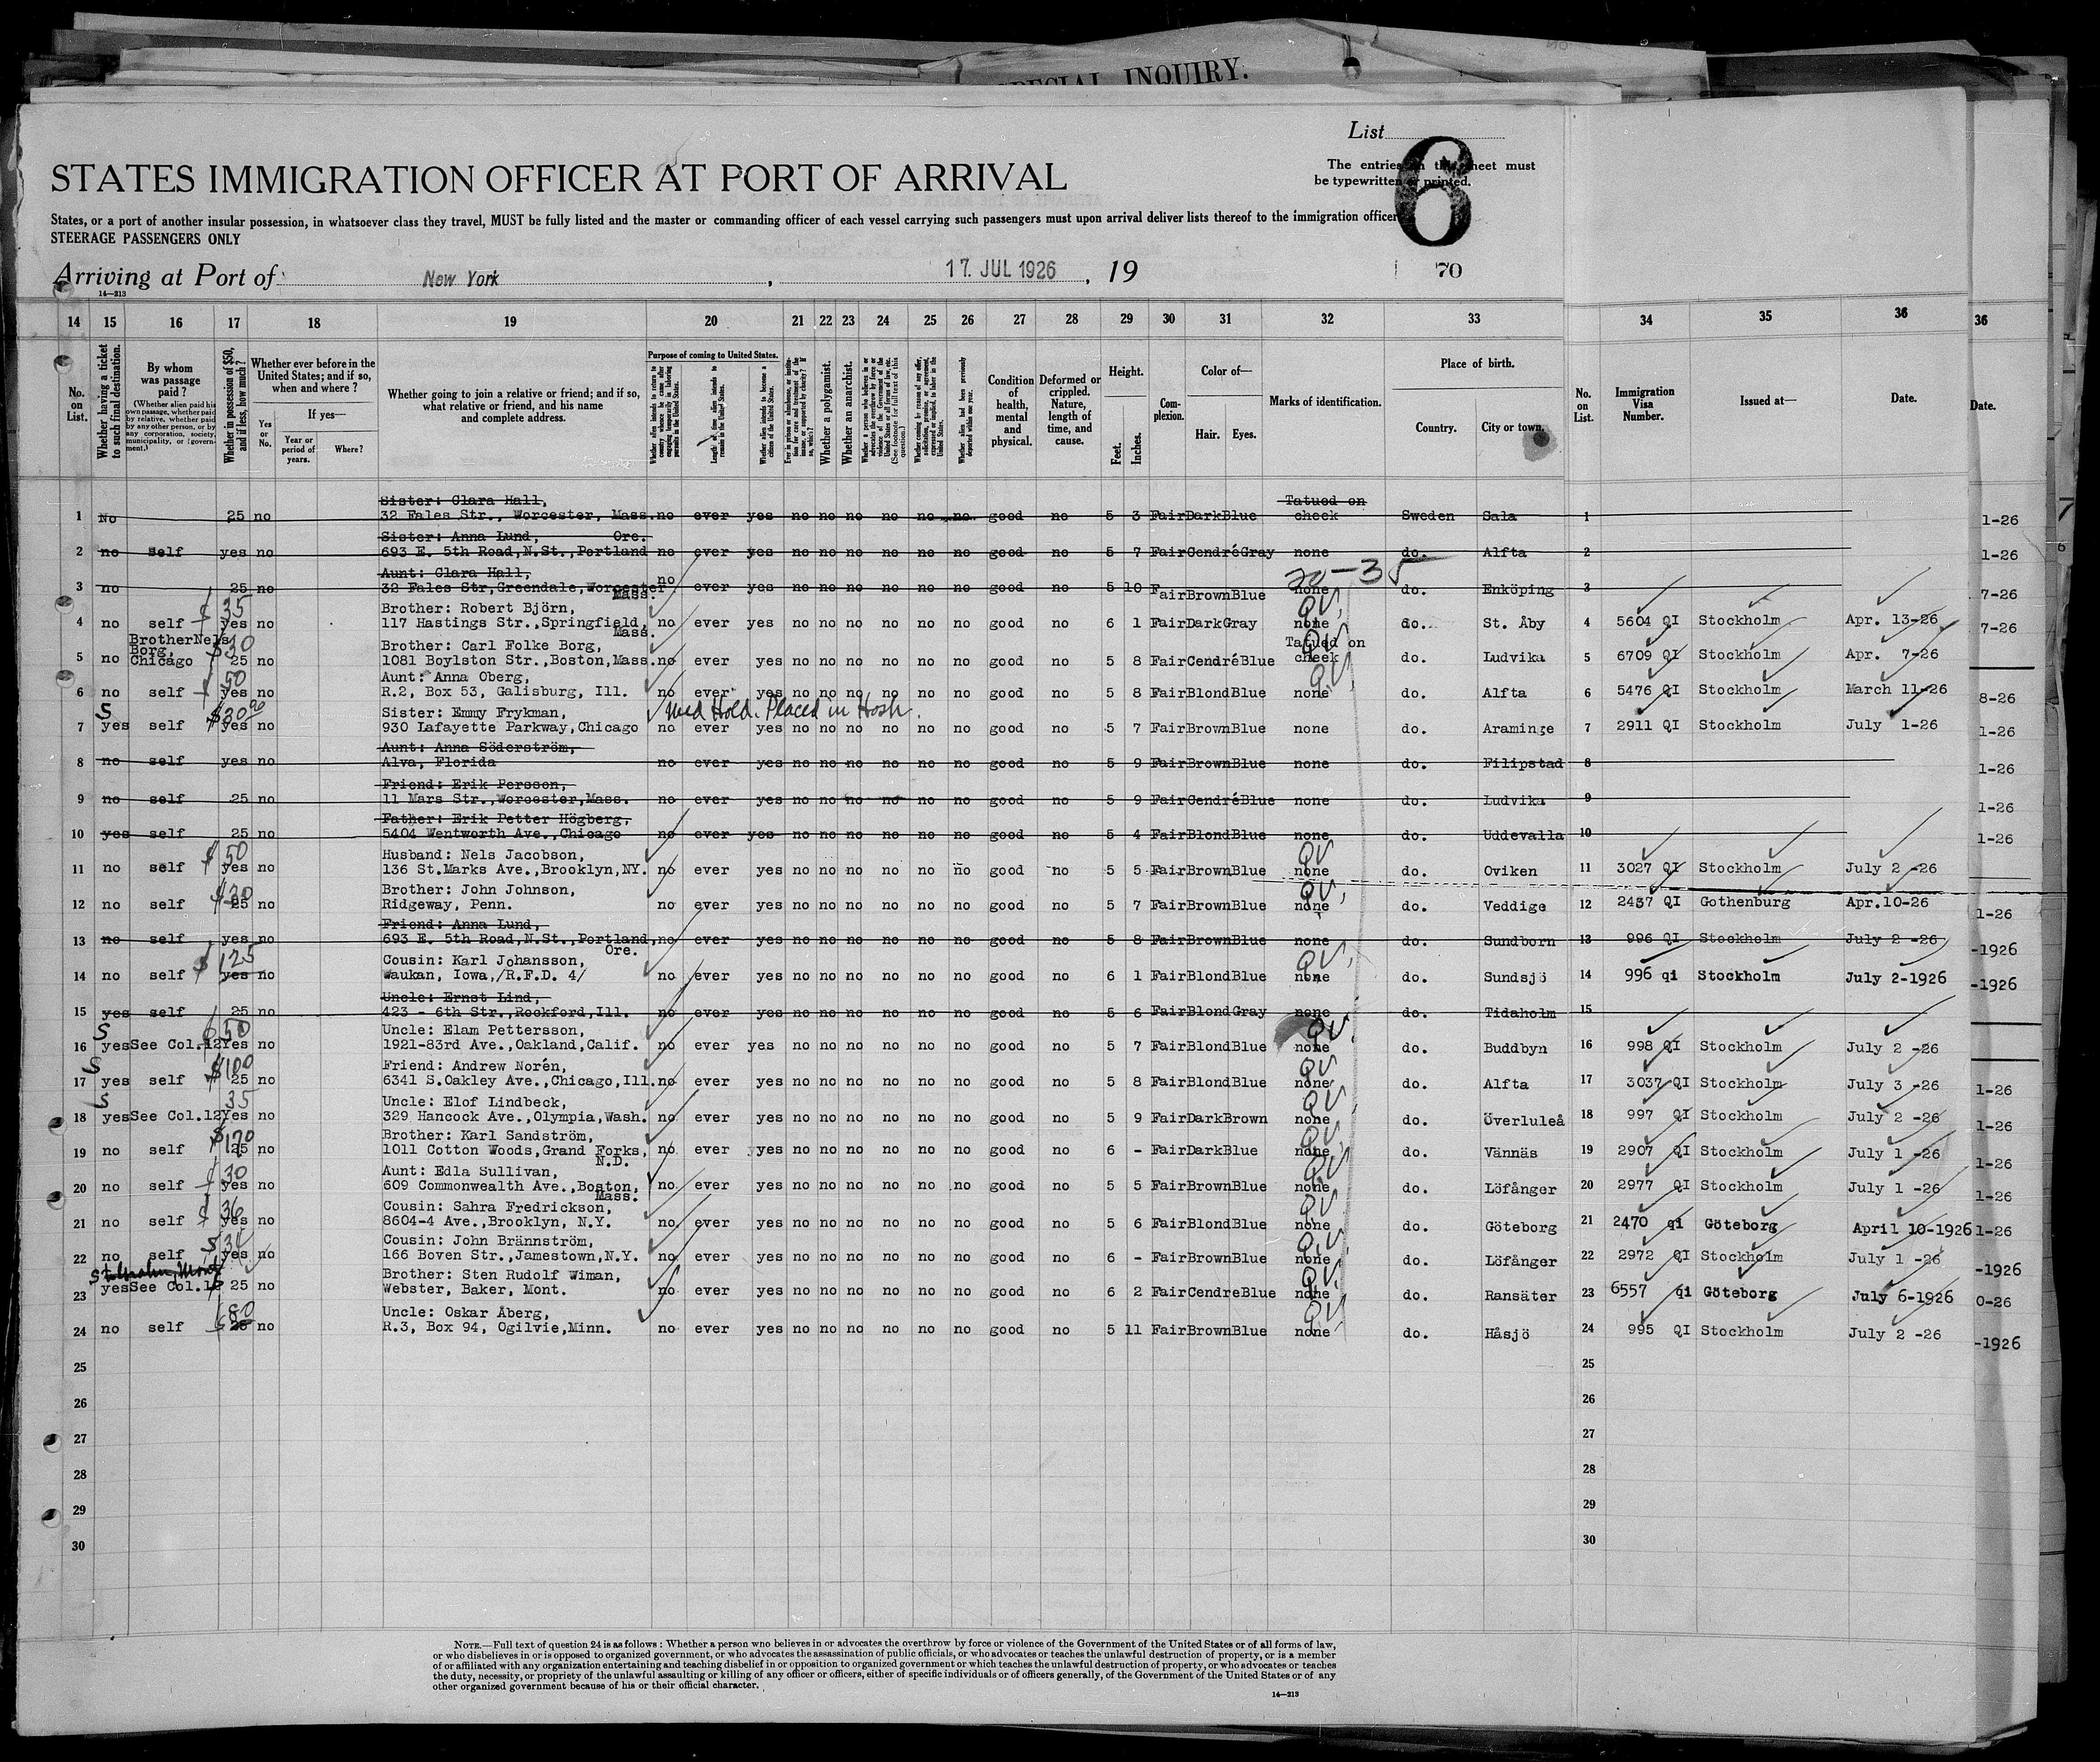 SPECIAL INQUIRY.
List
6
The entries on this sheet must
be typewritten or printed.
STATES IMMIGRATION OFFICER AT PORT OF ARRIVAL
States, or a port of another insular possession, in whatsoever class they travel, MUST be fully listed and the master or commanding officer of each vessel carrying such passengers must upon arrival deliver lists thereof to the immigration officer
STEERAGE PASSENGERS ONLY
Arriving at Port of New York, 17. JUL 1926, 19
70
14—213
14 15 16 17 18 19 20 21 22 23 24 25 26 27 28 29 30 31 32 33 34 35 36 36
No. on List.
Whether having a ticket to such final destination.
By whom was passage paid?
(Whether alien paid his own passage, whether paid by relative, whether paid by any other person, or by any corporation, society, municipality, or government.)
Whether in possession of $50, and if less, how much?
Whether ever before in the United States; and if so, when and where?
Yes or No.
If yes—
Year or period of years.
Where?
Whether going to join a relative or friend; and if so, what relative or friend, and his name and complete address.
Purpose of coming to United States.
Whether alien intends to return to country whence he came after engaging temporarily in laboring pursuits in the United States.
Length of time alien intends to remain in the United States.
Whether alien intends to become a citizen of the United States.
Whether a polygamist.
Whether an anarchist.
Condition of health, mental and physical.
Deformed or crippled. Nature, length of time, and cause.
Height.
Feet.
Inches.
Complexion.
Color of—
Hair.
Eyes.
Marks of identification.
Place of birth.
Country.
City or town.
No. on List.
Immigration Visa Number.
Issued at—
Date.
Date.
Sister: Clara Hall, Tatued on
1 No 25 no 32 Fales Str., Worcester, Mass. no ever yes no no no no no no good no 5 3 Fair Dark Blue cheek Sweden Sala 1 1-26
Sister: Anna Lund, Ore.
2 no self yes no 693 E. 5th Road,N.St.,Portland no ever yes no no no no no no good no 5 7 Fair Cendré Gray none do. Alfta 2 1-26
Aunt: Clara Hall, 20-35
3 no 25 no 32 Fales Str,Greendale,Worcester no ever yes no no no no no no good no 5 10 Fair Brown Blue none do. Enköping 3 7-26
Mass.
$35 Brother: Robert Björn, QV
4 no self yes no 117 Hastings Str.,Springfield, no ever yes no no no no no no good no 6 1 Fair Dark Gray none do. St. Åby 4 5604 QI Stockholm Apr. 13-26 7-26
Mass.
Brother Nels Borg, $30 Brother: Carl Folke Borg, Tatued on QV
5 no Chicago 25 no 1081 Boylston Str.,Boston,Mass. no ever yes no no no no no no good no 5 8 Fair Cendré Blue cheek do. Ludvika 5 6709 QI Stockholm Apr. 7-26
$50 Aunt: Anna Oberg, QV
6 no self yes no R.2, Box 53, Galisburg, Ill. no ever yes no no no no no no good no 5 8 Fair Blond Blue none do. Alfta 6 5476 QI Stockholm March 11-26 8-26
S $30 Sister: Emmy Frykman, Med Hold. Placed in Hosp.
7 yes self yes no 930 Lafayette Parkway,Chicago no ever yes no no no no no no good no 5 7 Fair Brown Blue none do. Araminge 7 2911 QI Stockholm July 1-26 1-26
Aunt: Anna Söderström,
8 no self yes no Alva, Florida no ever yes no no no no no no good no 5 9 Fair Brown Blue none do. Filipstad 8 1-26
Friend: Erik Persson,
9 no self 25 no 11 Mars Str.,Worcester,Mass. no ever yes no no no no no no good no 5 9 Fair Cendré Blue none do. Ludvika 9 1-26
Father: Erik Petter Högberg,
10 yes self 25 no 5404 Wentworth Ave.,Chicago no ever yes no no no no no no good no 5 4 Fair Blond Blue none do. Uddevalla 10 1-26
$50 Husband: Nels Jacobson, QV
11 no self yes no 136 St.Marks Ave.,Brooklyn,NY. no ever yes no no no no no no good no 5 5 Fair Brown Blue none do. Oviken 11 3027 QI Stockholm July 2 -26
$30 Brother: John Johnson, QV
12 no self 25 no Ridgeway, Penn. no ever yes no no no no no no good no 5 7 Fair Brown Blue none do. Veddige 12 2437 QI Gothenburg Apr.10-26 1-26
Friend: Anna Lund,
13 no self yes no 693 E. 5th Road,N.St.,Portland, no ever yes no no no no no no good no 5 8 Fair Brown Blue none do. Sundborn 13 996 QI Stockholm July 2 -26 -1926
Ore.
$125 Cousin: Karl Johansson, QV
14 no self yes no Waukan, Iowa,/R.F.D. 4/ no ever yes no no no no no no good no 6 1 Fair Blond Blue none do. Sundsjö 14 996 qi Stockholm July 2-1926 -1926
Uncle: Ernst Lind,
15 yes self 25 no 423 - 6th Str.,Rockford,Ill. no ever yes no no no no no no good no 5 6 Fair Blond Gray none do. Tidaholm 15
S $50 Uncle: Elam Pettersson, QV
16 yes See Col.12 Yes no 1921-83rd Ave.,Oakland,Calif. no ever yes no no no no no no good no 5 7 Fair Blond Blue none do. Buddbyn 16 998 QI Stockholm July 2 -26
S $100 Friend: Andrew Norén, QV
17 yes self 25 no 6341 S.Oakley Ave.,Chicago,Ill. no ever yes no no no no no no good no 5 8 Fair Blond Blue none do. Alfta 17 3037 QI Stockholm July 3 -26 1-26
S 35 Uncle: Elof Lindbeck, QV
18 yes See Col.12 Yes no 329 Hancock Ave.,Olympia,Wash. no ever yes no no no no no no good no 5 9 Fair Dark Brown none do. Överluleå 18 997 QI Stockholm July 2 -26 1-26
$170 Brother: Karl Sandström, QV
19 no self 25 no 1011 Cotton Woods,Grand Forks, no ever yes no no no no no no good no 6 - Fair Dark Blue none do. Vännäs 19 2907 QI Stockholm July 1 -26 1-26
N.D.
$30 Aunt: Edla Sullivan, QV
20 no self yes no 609 Commonwealth Ave.,Boston, no ever yes no no no no no no good no 5 5 Fair Brown Blue none do. Löfånger 20 2977 QI Stockholm July 1 -26 1-26
Mass.
$36 Cousin: Sahra Fredrickson, QV
21 no self yes no 8604-4 Ave.,Brooklyn, N.Y. no ever yes no no no no no no good no 5 6 Fair Blond Blue none do. Göteborg 21 2470 qi Göteborg April 10-1926 1-26
$34 Cousin: John Brännström, QV
22 no self yes no 166 Boven Str.,Jamestown,N.Y. no ever yes no no no no no no good no 6 - Fair Brown Blue none do. Löfånger 22 2972 QI Stockholm July 1 -26 -1926
S Brother: Sten Rudolf Wiman, QV
23 yes See Col. 25 no Webster, Baker, Mont. no ever yes no no no no no no good no 6 2 Fair Cendre Blue none do. Ransäter 23 6557 qi Göteborg July 6-1926 0-26
$80 Uncle: Oskar Åberg, QV
24 no self 25 no R.3, Box 94, Ogilvie,Minn. no ever yes no no no no no no good no 5 11 Fair Brown Blue none do. Håsjö 24 995 QI Stockholm July 2 -26 -1926
25 25
26 26
27 27
28 28
29 29
30 30
NOTE.—Full text of question 24 is as follows: Whether a person who believes in or advocates the overthrow by force or violence of the Government of the United States or of all forms of law,
or who disbelieves in or is opposed to organized government, or who advocates the assassination of public officials, or who advocates or teaches the unlawful destruction of property, or is a member
of or affiliated with any organization entertaining and teaching disbelief in or opposition to organized government or which teaches the unlawful destruction of property, or who advocates or teaches
the duty, necessity, or propriety of the unlawful assaulting or killing of any officer or officers, either of specific individuals or of officers generally, of the Government of the United States or of any
other organized government because of his or their official character.
14—213